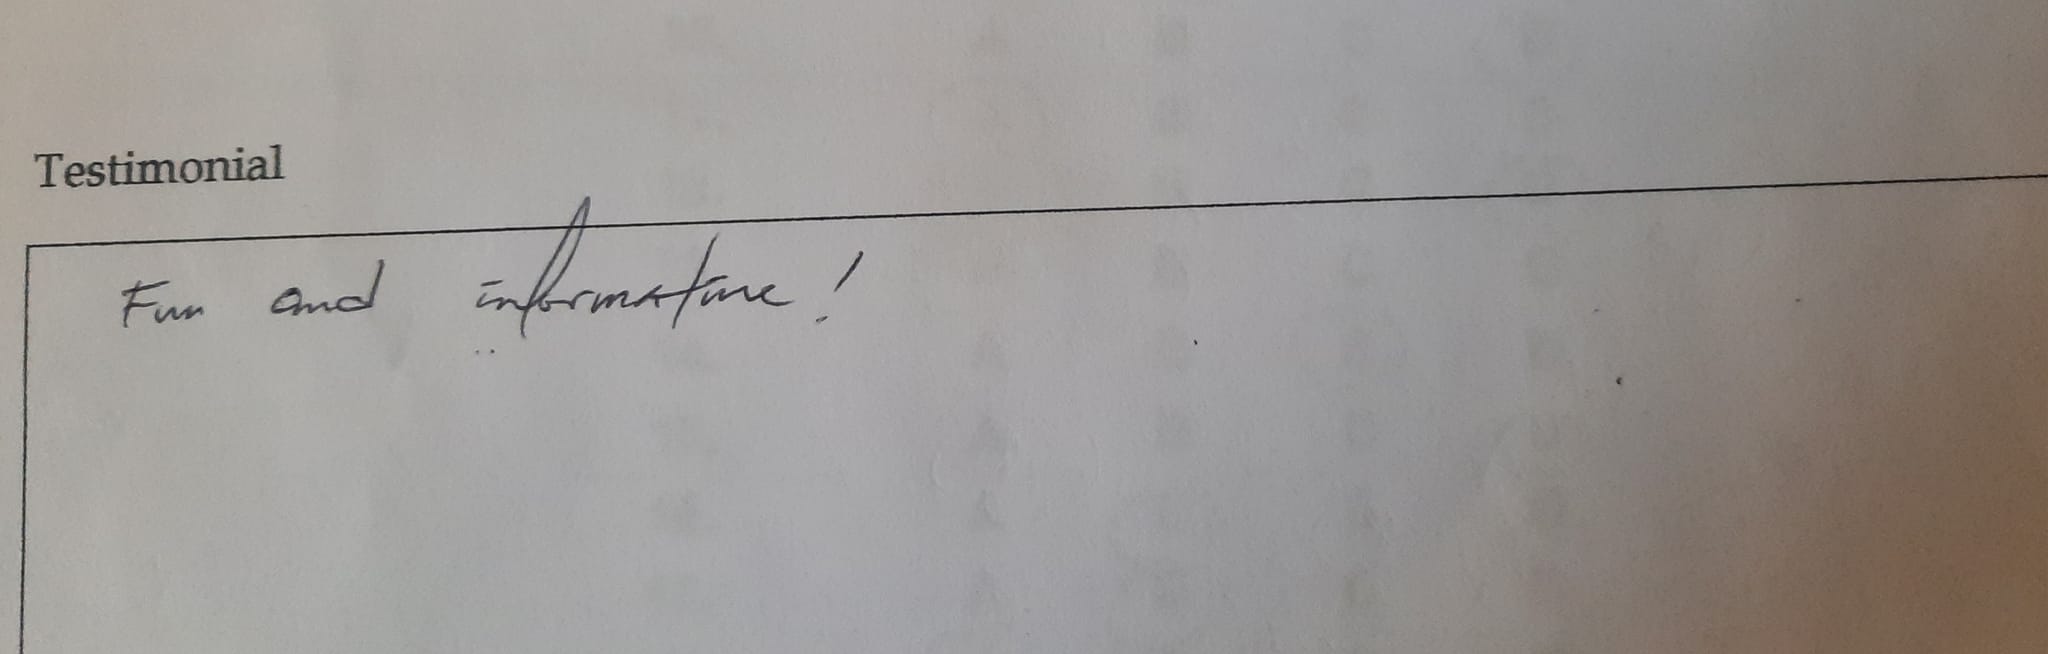 Testimonial
Fun and informative!